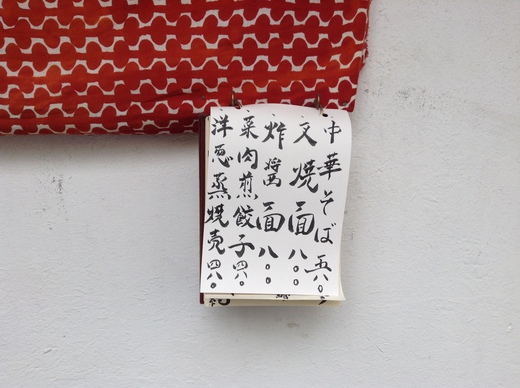 中華そば 五八〇
叉焼面 八〇〇
炸醤面 八〇〇
菜肉煎餃子 四八〇
洋葱蒸焼売 四八〇